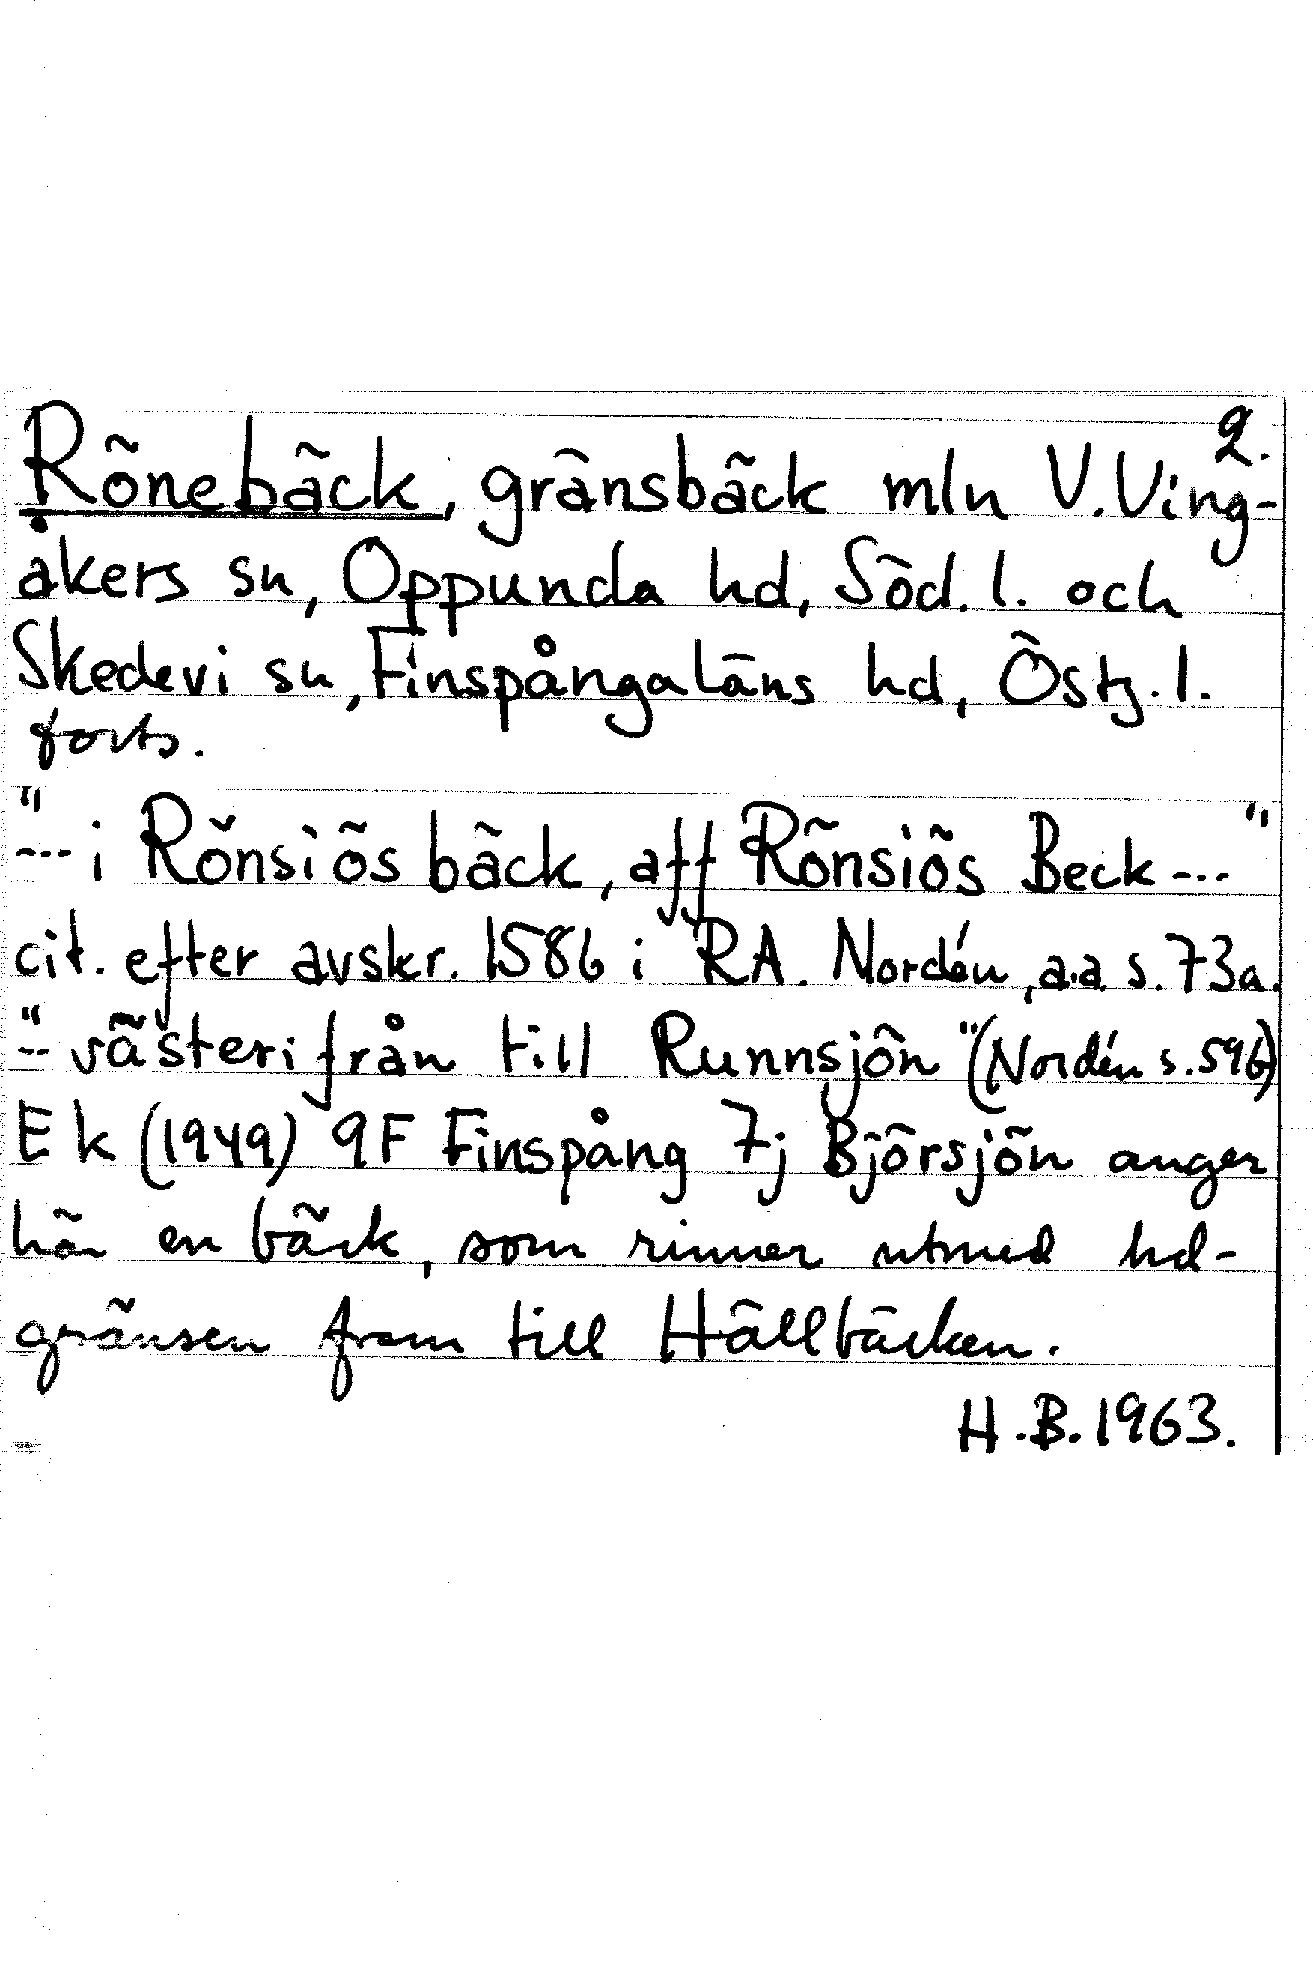 2.
Rönebäck, gränsbäck mln V. Ving-
åkers sn, Oppunda hd, Söd. l. och
Skedevi sn, Finspångaläns hd, Östg. l.
forts.
"--- i Rönsiös bäck, aff Rönsiös Beck ---"
cit. efter avskr. 1586 i RA. Nordén, a.a. s. 73a.
"-- västerifrån till Runnsjön" (Nordén s. 596)
Ek (1949) 9F Finspång 7j Björsjön anger
här en bäck, som rinner utmed hd-
gränsen fram till Hällbäcken.
H.B. 1963.